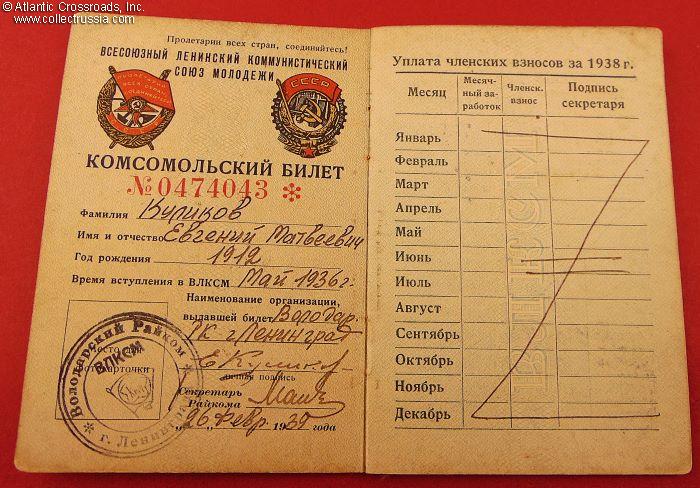 © Atlantic Crossroads, Inc.
www.collectrussia.com
Пролетарии всех стран, соединяйтесь!
ВСЕСОЮЗНЫЙ ЛЕНИНСКИЙ КОММУНИСТИЧЕСКИЙ
СОЮЗ МОЛОДЕЖИ
СССР
КОМСОМОЛЬСКИЙ БИЛЕТ
№ 0474043 *
Фамилия Куликов
Имя и отчество Евгений Матвеевич
Год рождения 1912
Время вступления в ВЛКСМ Май 1936 г.
Наименование организации,
выдавшей билет Володар.
РК г Ленинград
Место для
фотокарточки
Е Куликов
личная подпись
Секретарь
Райкома
"26" февр. 1939 года
Володарский Райком
ВЛКСМ
г. Ленинград
Уплата членских взносов за 1938 г.
Месяц Месячный заработок Членск. взнос Подпись секретаря
Январь
Февраль
Март
Апрель
Май
Июнь
Июль
Август
Сентябрь
Октябрь
Ноябрь
Декабрь